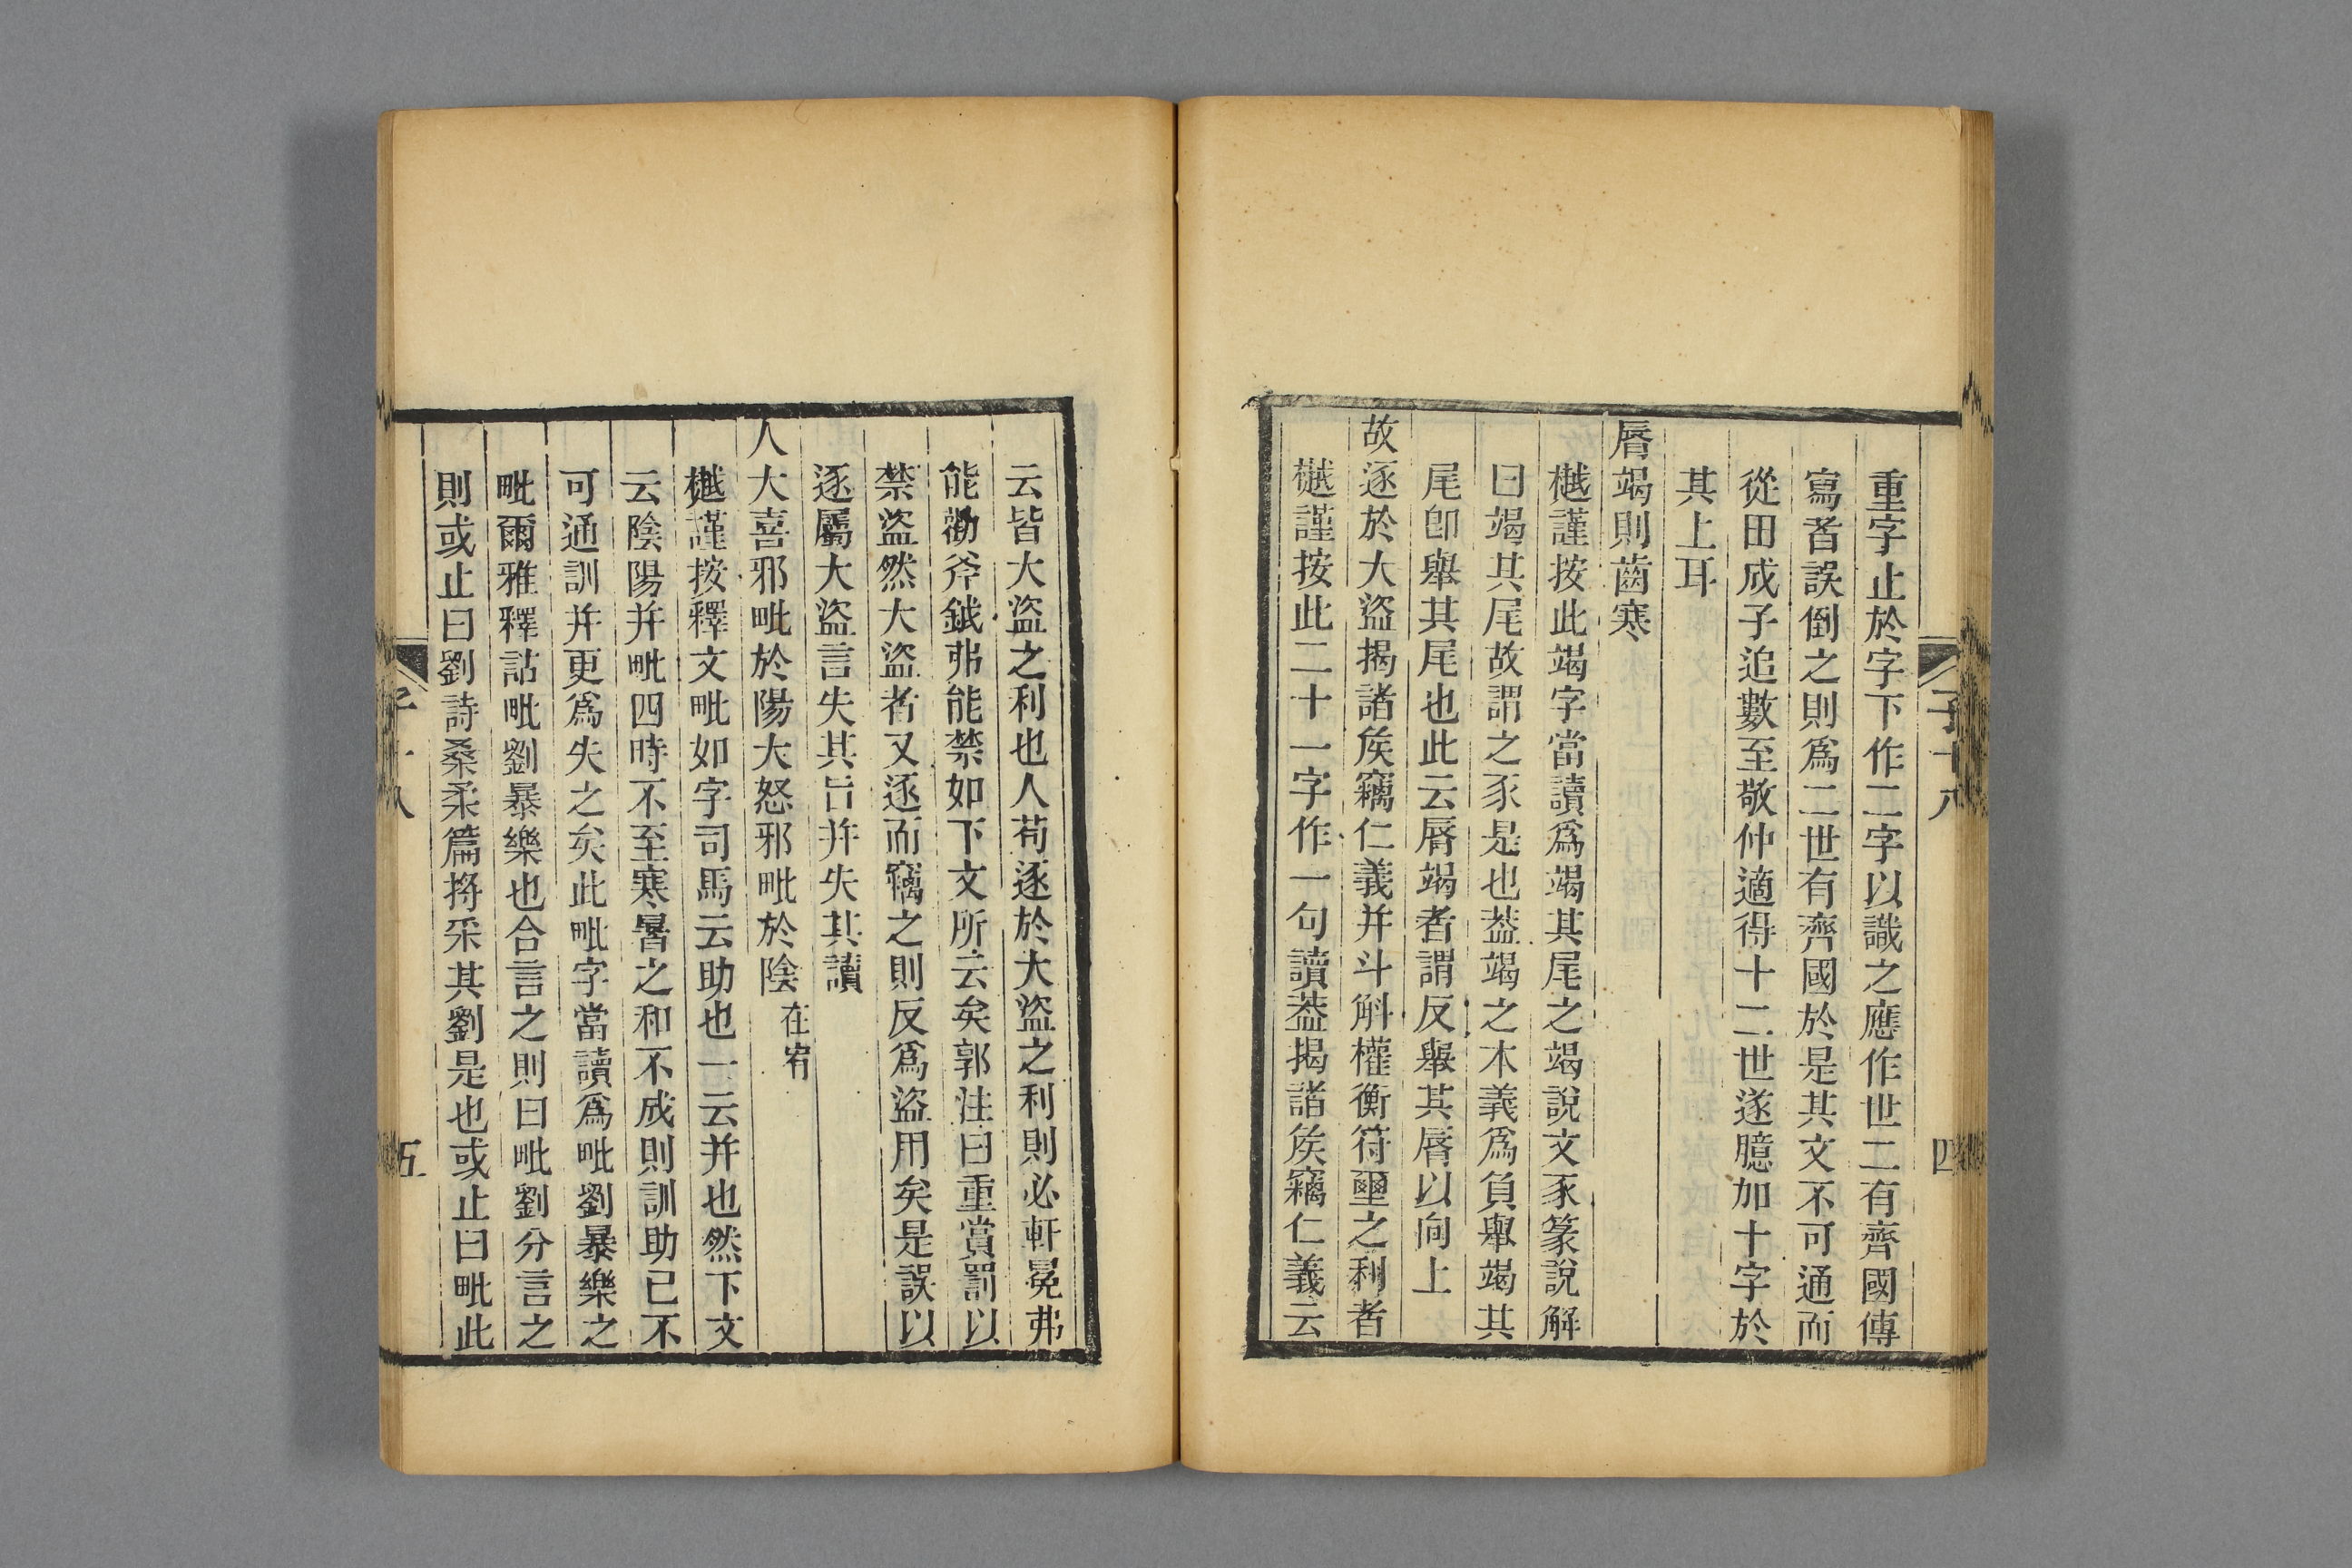 重字止於字下作二字以識之應作世二有齊國傳
寫者誤倒之則爲二世有齊國於是其文不可通而
從田成子追數至敬仲適得十二世遂臆加十字於
其上耳
脣竭則齒寒
樾謹按此竭字當讀爲竭其尾之竭說文豕篆說解
曰竭其尾故謂之豕是也葢竭之本義爲負舉竭其
尾卽舉其尾也此云脣竭者謂反舉其脣以向上
故逐於大盜揭諸矦竊仁義幷斗斛權衡符璽之利者
樾謹按此二十一字作一句讀葢揭諸矦竊仁義云
子十八
四
云皆大盜之利也人苟逐於大盜之利則必軒冕弗
能勸斧鉞弗能禁如下文所云矣郭注曰重賞罰以
禁盜然大盜者又逐而竊之則反爲盜用矣是誤以
逐屬大盜言失其旨幷失其讀
人大喜邪毗於陽大怒邪毗於陰 在宥
樾謹按釋文毗如字司馬云助也一云幷也然下文
云陰陽幷毗四時不至寒暑之和不成則訓助已不
可通訓幷更爲失之矣此毗字當讀爲毗劉暴樂之
毗爾雅釋詁毗劉暴樂也合言之則曰毗劉分言之
則或止曰劉詩桑柔篇捋采其劉是也或止曰毗此
子十八
五